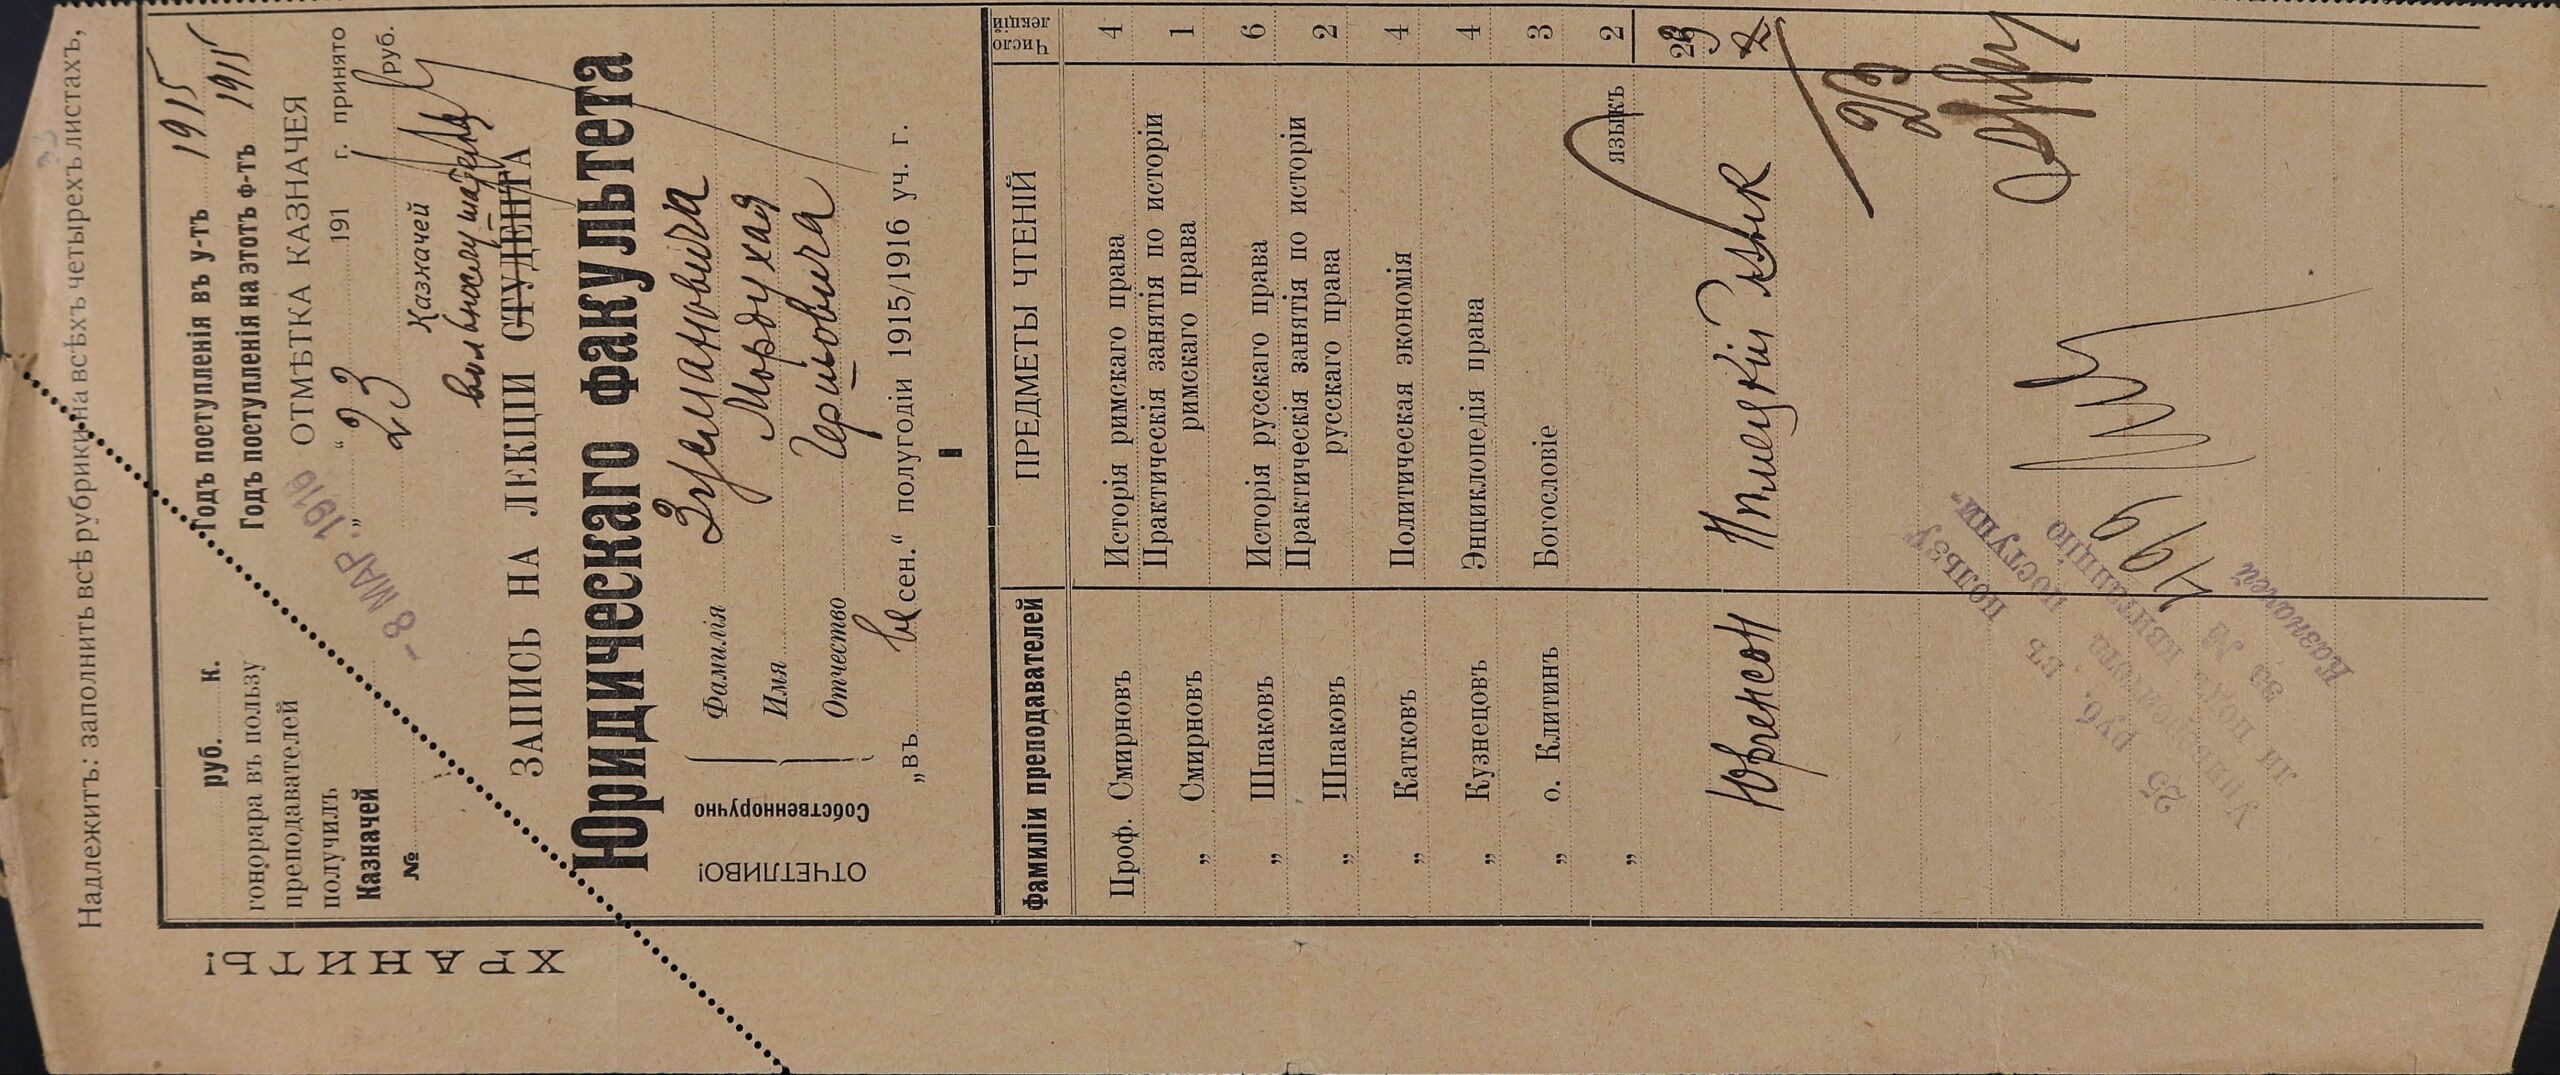 Надлежитъ: заполнить всѣ рубрики на всѣхъ четырехъ листахъ,
ХРАНИТЬ!
руб. к.
гонорара въ пользу
преподавателей
получилъ
Казначей
№
Годъ поступленія въ у-тъ 1915
Годъ поступленія на этотъ ф-тъ 1915
ОТМѢТКА КАЗНАЧЕЯ
- 8 МАР. 1916
„ “ 191 г. принято
23 руб.
Казначей
ЗАПИСЬ НА ЛЕКЦІИ СТУДЕНТА
Юридическаго факультета
ОТЧЕТЛИВО!
Собственноручно
Фамилія Зусмановича
Имя Мордухая
Отчество Гершовича
„въ весен.“ полугодіи 1915/1916 уч. г.
Фамиліи преподавателей ПРЕДМЕТЫ ЧТЕНІЙ Число лекцій
Проф. Смирновъ Исторія римскаго права 4
„ Смирновъ Практическія занятія по исторіи римскаго права 1
„ Шпаковъ Исторія русскаго права 6
„ Шпаковъ Практическія занятія по исторіи русскаго права 2
„ Катковъ Политическая экономія 4
„ Кузнецовъ Энциклопедія права 4
„ о. Клитинъ Богословіе 3
„ языкъ 2
Юргенсон Нѣмецкій языкъ 2
23
25 руб. въ пользу
Университета поступи-
ли подъ квитанцію
за № 499
Казначей